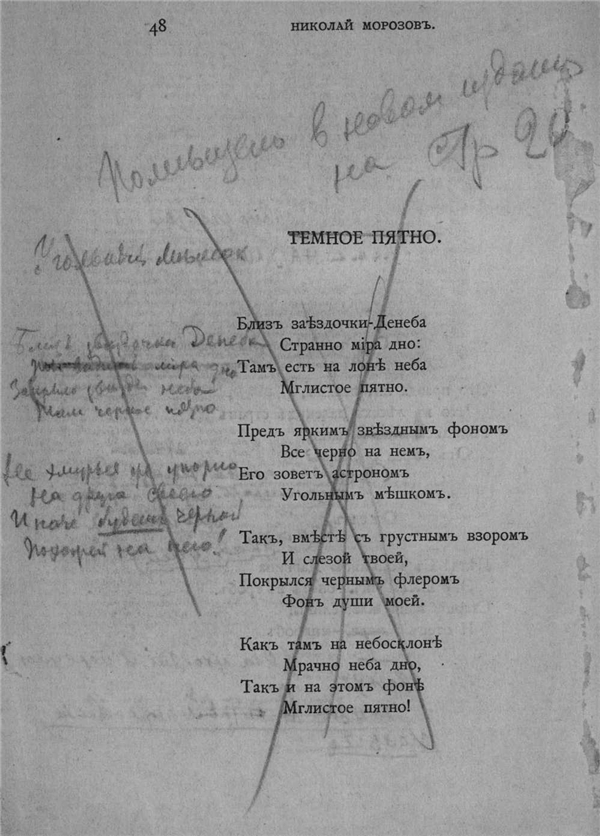 48
НИКОЛАЙ МОРОЗОВЪ.
в новом
на Стр
ТЕМНОЕ ПЯТНО.
Близъ заѣздочки-Денеба
Странно міра дно:
Тамъ есть на лонѣ неба
Мглистое пятно.
Предъ яркимъ звѣзднымъ фономъ
Все черно на немъ,
Его зоветъ астрономъ
Угольнымъ мѣшкомъ.
Такъ, вмѣстѣ съ грустнымъ взоромъ
И слезой твоей,
Покрылся чернымъ флеромъ
Фонъ души моей.
Какъ тамъ на небосклонѣ
Мрачно неба дно,
Такъ и на этомъ фонѣ
Мглистое пятно!
Денеба
мира дно
неба
Там черное пятно
Не хмурься упорно
На друга своего
Иначе будешь черной
на него!